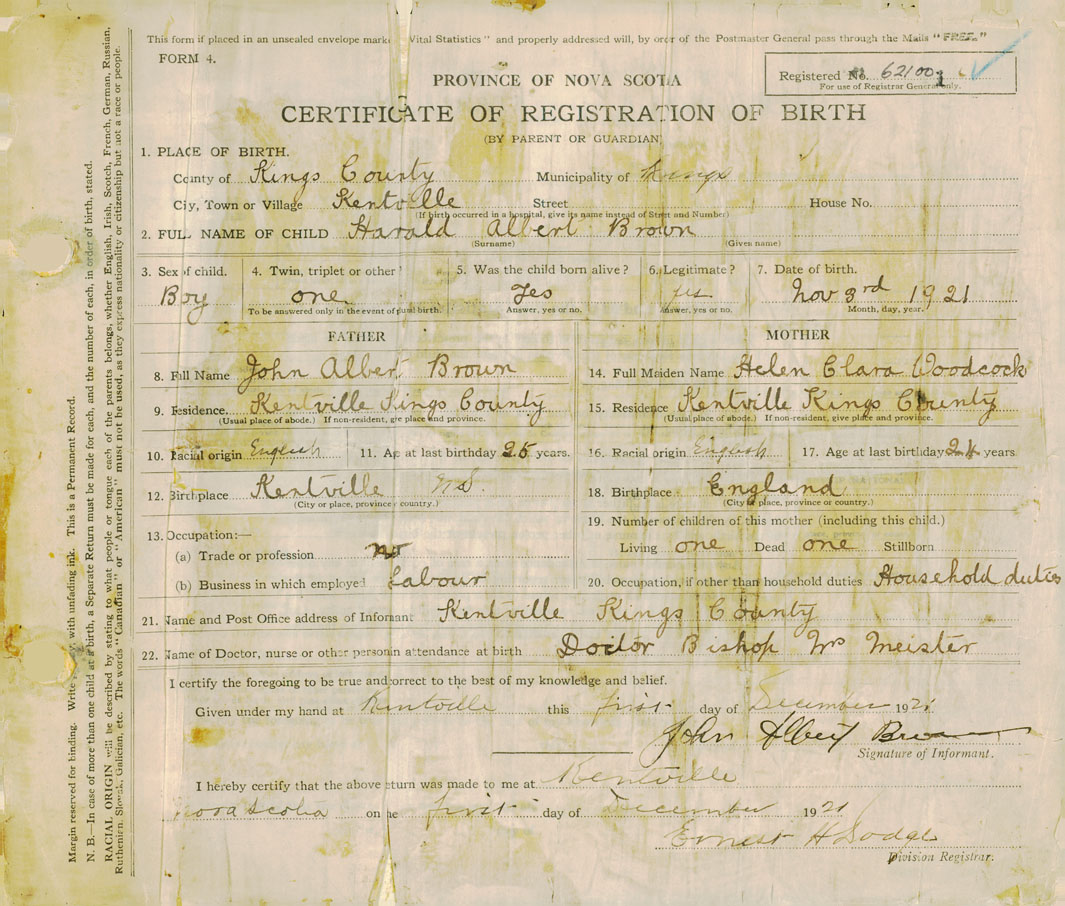 This form if placed in an unsealed envelope marked "Vital Statistics" and properly addressed will, by order of the Postmaster General pass through the Mails "FREE."
FORM 4.
Registered No. 62100
For use of Registrar General only.
PROVINCE OF NOVA SCOTIA
CERTIFICATE OF REGISTRATION OF BIRTH
(BY PARENT OR GUARDIAN)
1. PLACE OF BIRTH.
County of Kings County Municipality of Kings
City, Town or Village Kentville Street House No.
(If birth occurred in a hospital, give its name instead of Street and Number)
2. FULL NAME OF CHILD Harald Albert Brown
(Surname) (Given name)
3. Sex of child. 4. Twin, triplet or other 5. Was the child born alive? 6. Legitimate? 7. Date of birth.
Boy one Yes yes Nov 3rd 1921
To be answered only in the event of plural birth. Answer, yes or no. Answer, yes or no. Month, day, year.
FATHER
8. Full Name John Albert Brown
9. Residence. Kentville Kings County
(Usual place of abode.) If non-resident, give place and province.
10. Racial origin English 11. Age at last birthday 25 years.
12. Birthplace Kentville N.S.
(City or place, province or country.)
13. Occupation:—
(a) Trade or profession no
(b) Business in which employed Labour
MOTHER
14. Full Maiden Name Helen Clara Woodcock
15. Residence Kentville Kings County
(Usual place of abode.) If non-resident, give place and province.
16. Racial origin English 17. Age at last birthday 24 years.
18. Birthplace England
(City or place, province or country.)
19. Number of children of this mother (including this child.)
Living one Dead one Stillborn
20. Occupation, if other than household duties Household duties
21. Name and Post Office address of Informant Kentville Kings County
22. Name of Doctor, nurse or other person in attendance at birth Doctor Bishop Mrs Meister
I certify the foregoing to be true and correct to the best of my knowledge and belief.
Given under my hand at Kentville this first day of December 1921
John Albert Brown
Signature of Informant.
I hereby certify that the above return was made to me at Kentville
Nova Scotia on the first day of December 1921
Ernest H Dodge
Division Registrar.
Margin reserved for binding. Write plainly with unfading ink. This is a Permanent Record.
N. B.—In case of more than one child at a birth, a Separate Return must be made for each, and the number of each, in order of birth, stated.
RACIAL ORIGIN will be described by stating to what people or tongue each of the parents belongs, whether English, Irish, Scotch, French, German, Russian,
Ruthenian, Slovak, Galician, etc. The words "Canadian" or "American" must not be used, as they express nationality or citizenship but not a race or people.